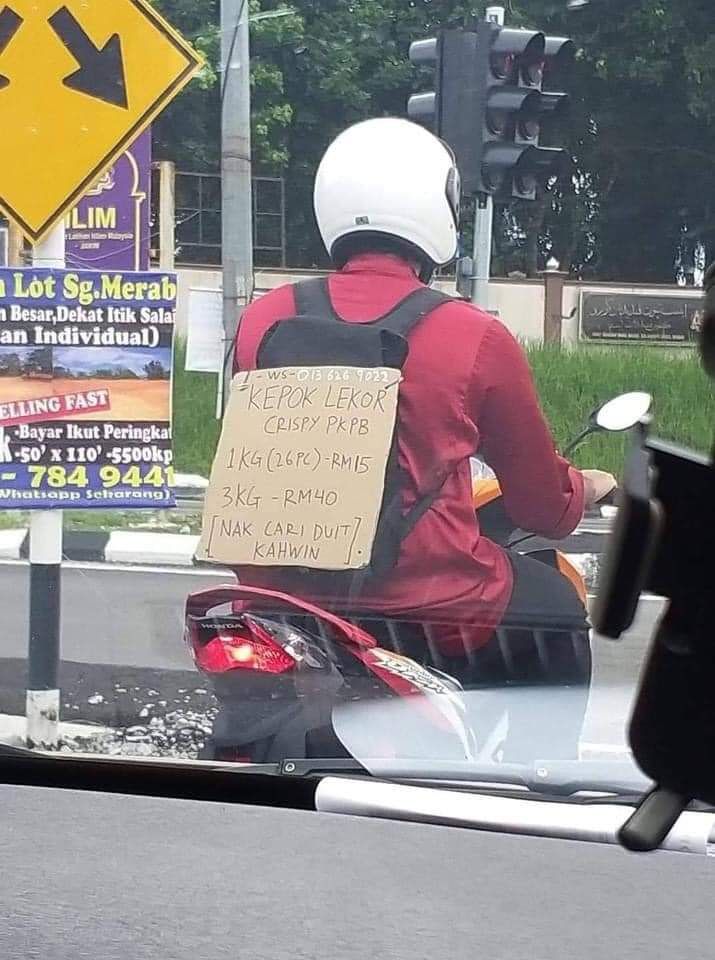 ILIM
Lot Sg.Merab
Besar,Dekat Itik Sala
an Individual)
ELLING FAST
-Bayar Ikut Peringkat
-50' x 110' -5500kp
- 784 9441
Whatsapp Sekarang)
- WS-013 626 9022
KEPOK LEKOR
CRISPY PKPB
1KG (26PC) -RM15
3KG -RM40
[NAK CARI DUIT
KAHWIN].
HONDA